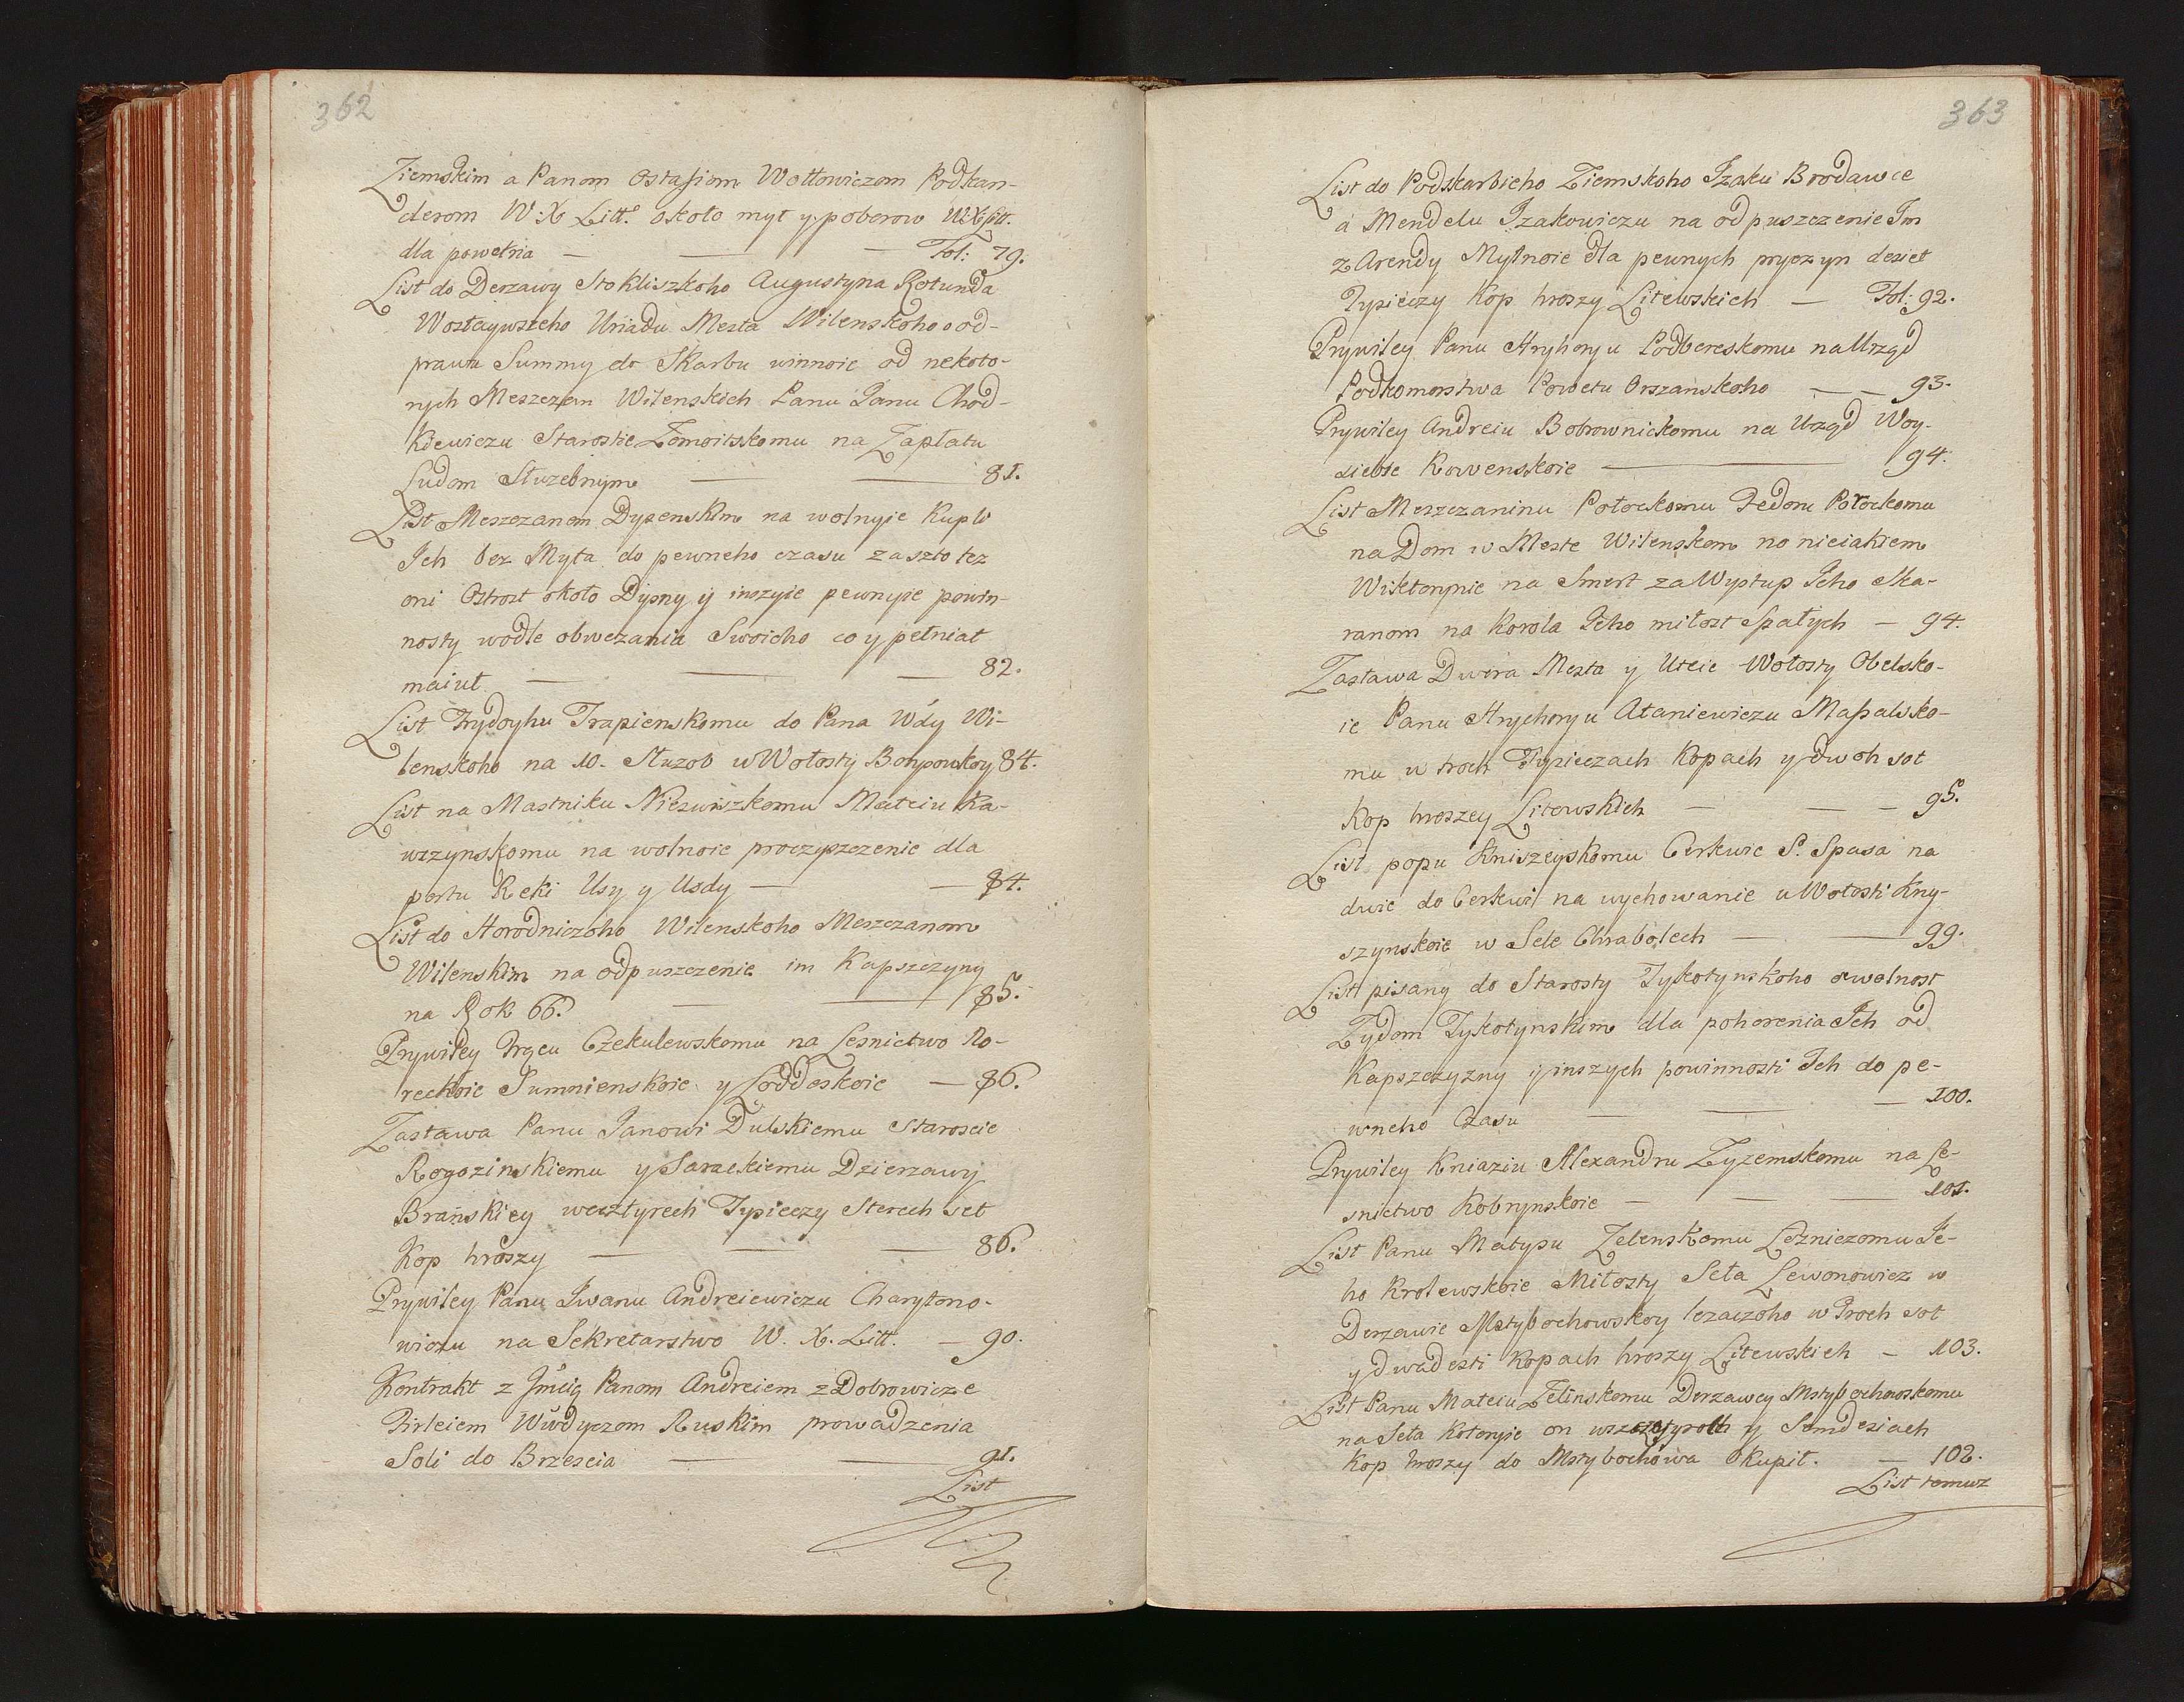 362
Ziemskim a Panom Ostafiom Wołłowiczom Podkan-
clerom W. X. Litt. około myt y poborow W X Litt.
dla powetria — — — Fol: 79.
List do Derzawy Stokliszkoho Augustyna Rotunda
Wostaywszcho Uriadu Mesta Wilenskoho o od-
prawu Summy do Skarbu winnoie od nekoto-
rych Meszczan Wilenskich Panu Janu Chod-
kiewiczu Starostie Zomoitskomu na Zapłatu
Ludom Służebnym — — 81.
List Meszczanom Dysenskim na wolnyie Kupli
Ich bez Myta do pewneho czasu zaszto tez
oni Ostrost około Dysny ÿ inszyie pewnyie powin-
nosty wodle obwezania Swoieho co y pełniat
maiut — — — 82.
List Frydryhu Trapienskomu do Pana Wdy Wi-
lenskoho na 10. Służob u Wołosty Borysowskoy 84.
List na Mastniku Nieswiszkomu Mateiu Ka-
wrzynskomu na wolnoie proczyszczenie dla
portu Reki Usy y Usdy — — 84.
List do Horodniczoho Wilenskoho Meszczanom
Wilenskim na odpuszczenie im Kapszczyny
na Rok 66. — — 85.
Prywiley Frącu Czekulewskomu na Lesnictwo Ro-
reckoie Sumnienskoie y Łoddoskoie — 86.
Zastawa Panu Janowi Dulskiemu Staroscie
Rogozinskiemu y Saraskiemu Dzierzawy
Branskiey weczŧyrech Tysieczy Sterech set
Kop hroszy — — — 86.
Prywiley Panu Iwanu Andreiewiczu Charytono-
wiczu na Sekretarstwo W. X. Litt. — 90.
Kontrakt z Jmcią Panom Andreiem z Dobrowicze
Firleiem Wwdyczom Ruskim prowadzenia
Soli do Brzescia — — 91.
List
363
List do Podskarbieho Ziemskoho Izaku Brodawce
a Mendelu Izakowiczu na odpuszczenie Im
z Arendy Mytnoie dla pewnych pryczyn deset
Tysieczy Kop hroszy Litewskich — Fol: 92.
Prywiley Panu Hryhoryu Podbereskomu na Urząd
Podkomorstwa Powetu Orszanskoho — — 93.
Prywiley Andreiu Bobrownickomu na Urząd Woy-
siebie Kowenskoie — 94.
List Meszczaninu Połockomu Fedoru Połockomu
na Dom w Meste Wilenskom no nieiakiem
Wiktorynie na Smert za Wystup Jeho Ska-
ranom na Korola Jeho miłost Spałych — 94.
Zastawa Dwora Mesta y Useie Wołosty Obelsko-
ie Panu Hrychoryu Ataniewiczu Massalsko-
mu u troch Tysieczach Kopach y dwoh sot
Kop hroszey Litowskich — — — 95.
List popu Kniszeyskomu Cerkwie S. Spasa na
dwie do Cerkwi na wychowanie u Wołosti Kny-
szynskoie w Sele Chrabolech — — 99.
List pisany do Starosty Tykotynskoho o wolnost
Zydom Tykotynskim dla pohorenia Ich od
Kapszczyzny ÿ inszych powinnosti Ich do pe-
wneho Czasu — — — 100.
Prywiley Kniaziu Alexandru Zyzemskomu na Le-
snictwo Kobrynskoie — — — 101.
List Panu Matysu Zelenskomu Lezniczomu Je-
ho Krolewskoie Miłosty Seła Lewonowicz w
Derzawie Mstybochowskoy lezaczoho w Troch sot
y dwadesti Kopach hroszy Litewskich — 103.
List Panu Mateiu Zelinskomu Derzawcy Mstybochowskomu
na Seła Kotoryie on wszczetyroch y Semdesiach
Kop hroszy do Mstybochowa Okupił. — 102.
List tomuz